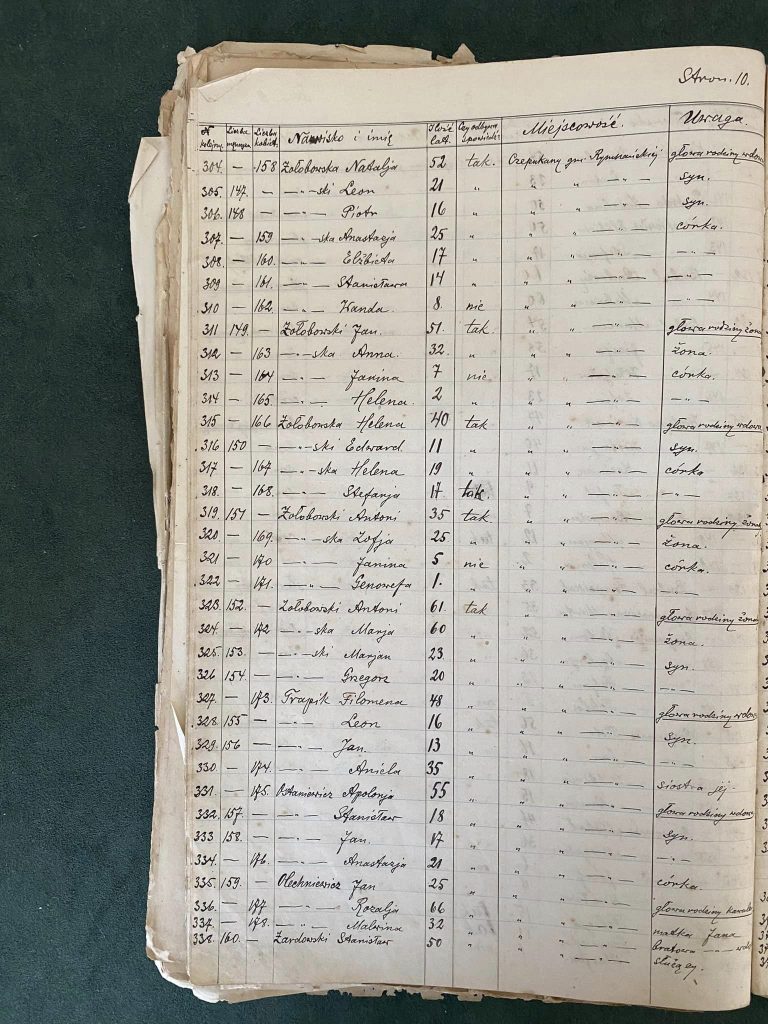 Stron. 10.
N kolejny. Liczba mężczyzn Liczba kobiet. Nazwisko i imię Ilość lat. Czy odbywa spowiedź Miejscowość. Uwaga.
304. — 158 Żołobowska Natalja 52 tak. Czepukany gm. głowa rodziny wdowa
305. 147. — —„—ski Leon 21 „ „ „ —„— syn.
306. 148 — —„— Piotr 16 „ „ „ —„— syn.
307. — 159 —„—ska Anastazja 25 „ „ „ —„— córka.
308. — 160. —„— Elżbieta 17 „ „ „ —„— —„—
309 — 161. —„— Stanisława 14 „ „ „ —„— —„—
310 — 162. —„— Wanda 8. nie „ „ —„— —„—
311 149. — Żołobowski Jan. 51. tak. „ „ —„— głowa rodziny żona
312 — 163 —„—ska Anna. 32. „ „ „ —„— żona
313 — 164 —„— Janina 7 nie „ „ —„— córka.
314 — 165 —„— Helena. 2 „ „ „ —„— —„—
315 — 166 Żołobowska Helena 40 tak „ „ —„— głowa rodziny wdowa
316 150 — —„—ski Edward. 11 „ „ „ —„— syn.
317 — 167 —„—ska Helena 19 „ „ „ —„— córka
318. — 168. —„— Stefanja 17 tak „ „ —„— —„—
319. 151 — Żołobowski Antoni 35 tak. „ „ —„— głowa rodziny żona
320. — 169. —„—ska Zofja 25 „ „ „ —„— żona.
321 — 170 —„— Janina 5 nie „ „ —„— córka.
322 — 171. —„— Genowefa 1. „ „ „ —„— —„—
323. 152. — Żołobowski Antoni 61. tak „ „ —„— głowa rodziny żona
324. — 172 —„—ska Marja 60 „ „ „ —„— żona.
325. 153. — —„—ski Marjan 23. „ „ „ —„— syn.
326 154. — —„— Grzegorz 20 „ „ „ —„— —„—
327. — 173. Trapik Filomena 48 „ „ „ —„— głowa rodziny wdowa
328. 155 — —„— Leon 16 „ „ „ —„— syn.
329. 156 — —„— Jan. 13 „ „ „ —„— —„—
330. — 174. —„— Aniela 35 „ „ „ —„— siostra jej.
331. — 175. Ostaniewicz Apolonja 55 „ „ „ —„— głowa rodziny wdowa
332. 157. — —„— Stanisław 18 „ „ „ —„— syn.
333 158. — —„— Jan. 17 „ „ „ —„— —„—
334. — 176. —„— Anastazja 21 „ „ „ —„— córka
335. 159. — Olechniewicz Jan 25 „ „ „ —„— głowa rodziny kawaler
336. — 177 —„— Rozalja 66 „ „ „ —„— matka Jana
337. — 178. —„— Malwina 32 „ „ „ —„— bratowa —„—
338. 160. — Żardowski Stanisław 50 „ „ „ —„— służący.